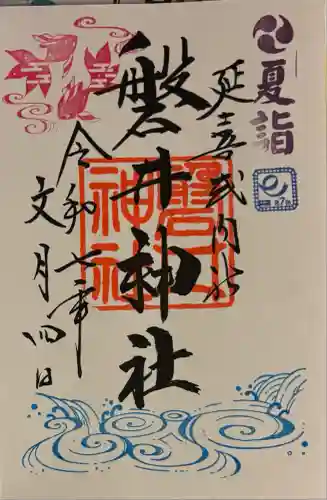 夏詣
延喜式内社
磐井神社
令和七年
文月四日
磐井神社